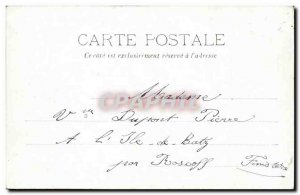 CARTE POSTALE
Ce côté est exclusivement réservé à l'adresse
Madame
Vve Dupont Pierre
A l'Ile-de-Batz
par Roscoff Finistère